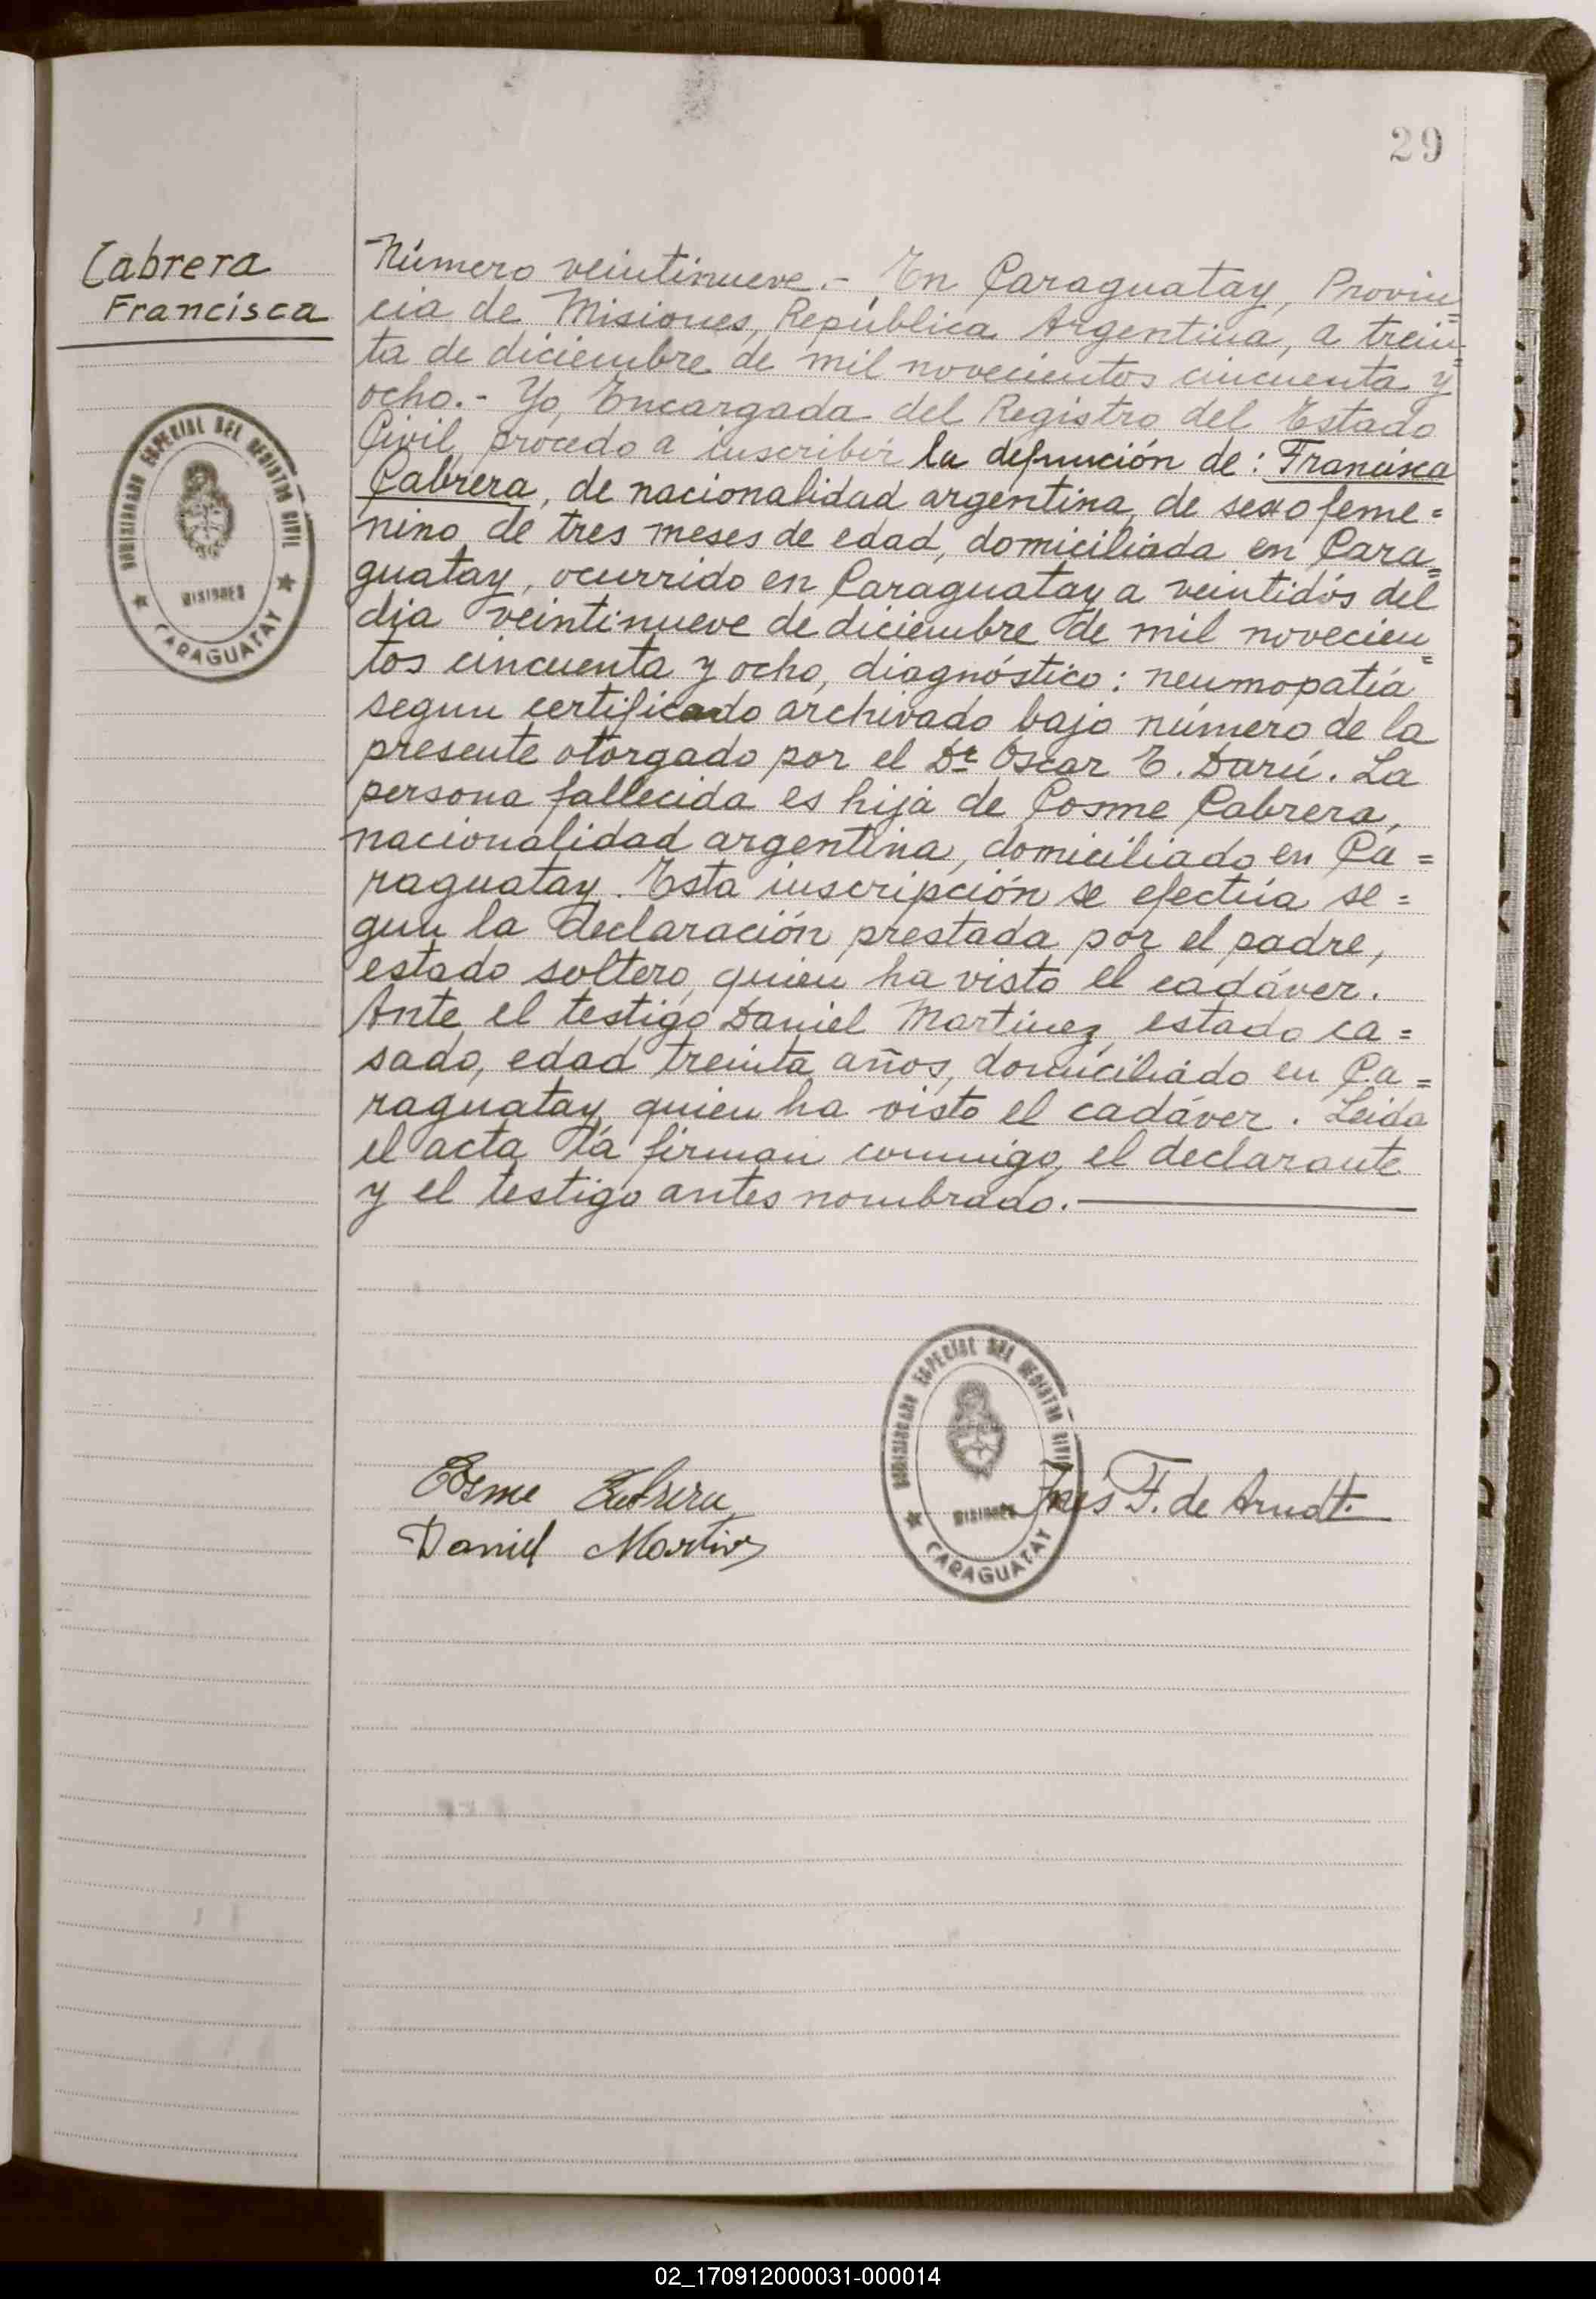 29
Cabrera
Francisca
Número veintinueve.- En Caraguatay, Provin=
cia de Misiones, República Argentina, a trein=
ta de diciembre de mil novecientos cincuenta y
ocho.- Yo, Encargada del Registro del Estado
Civil, procedo a inscribir la defunción de: Francisca
Cabrera, de nacionalidad argentina, de sexo feme=
nino, de tres meses de edad, domiciliada en Cara=
guatay, ocurrido en Caraguatay a veintidós del
dia veintinueve de diciembre de mil novecien=
tos cincuenta y ocho, diagnóstico: neumopatía
segun certificado archivado bajo número de la
presente otorgado por el Dr Oscar E. Darú. La
persona fallecida es hija de Cosme Cabrera,
nacionalidad argentina, domiciliado en Ca=
raguatay. Esta inscripción se efectúa se=
gun la declaración prestada por el padre,
estado soltero, quien ha visto el cadáver.
Ante el testigo Daniel Martinez, estado ca=
sado, edad treinta años, domiciliado en Ca=
raguatay, quien ha visto el cadáver. Leida
el acta la firman conmigo, el declarante
y el testigo antes nombrado.
ESPECIAL DEL REGISTRO CIVIL
MISIONES
CARAGUATAY
ESPECIAL DEL REGISTRO CIVIL
MISIONES
CARAGUATAY
Cosme Cabrera
Inés F. de Arndt.
Daniel Martinz
02_170912000031-000014